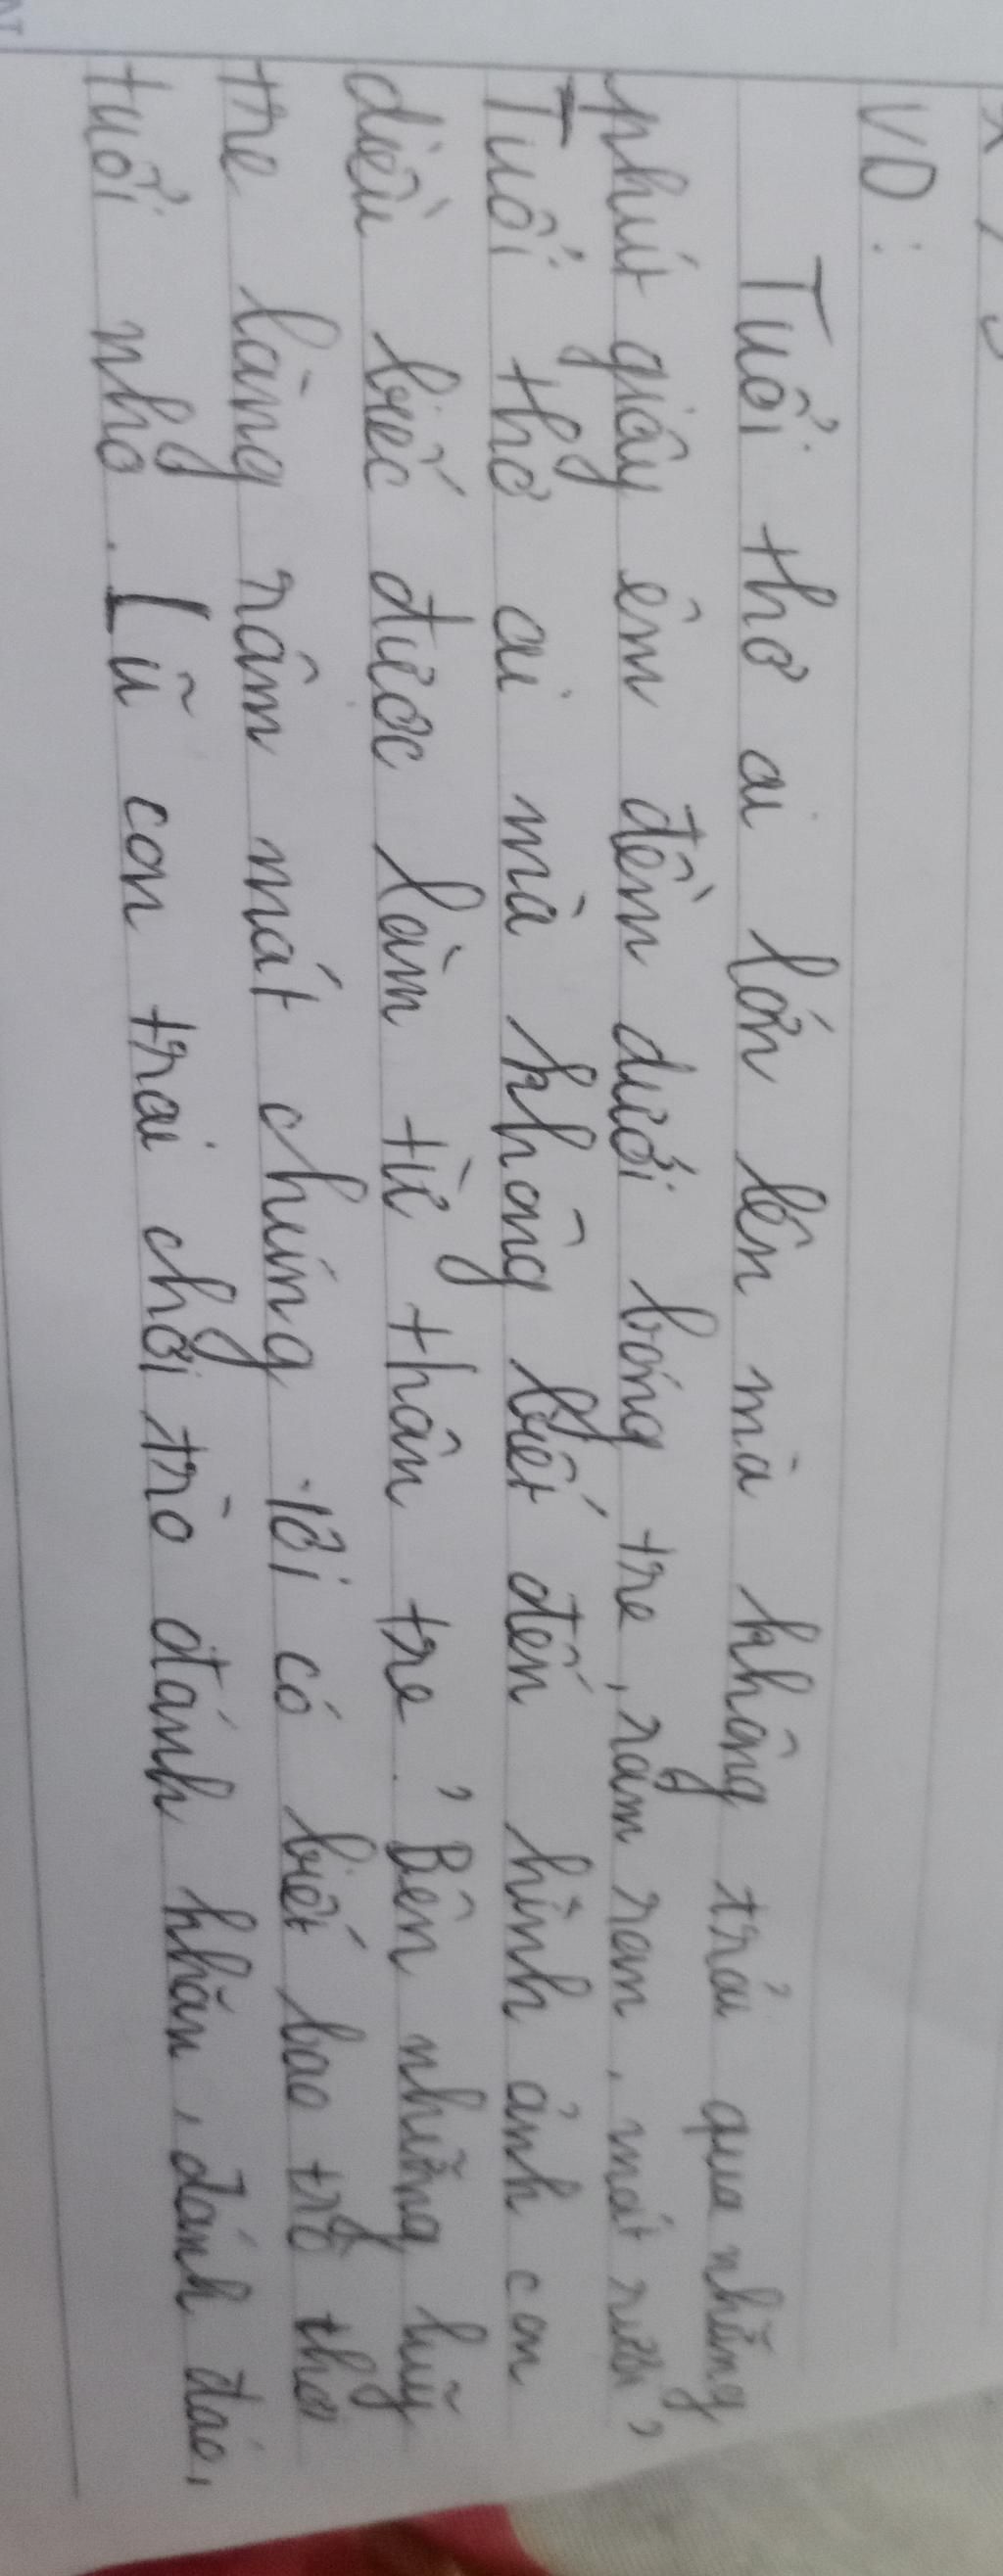 VD:
Tuổi thơ ai lớn lên mà không trải qua những
phút giây êm đềm dưới bóng tre, râm ran, mát rười,
Tuổi thơ ai mà không biết đến hình ảnh con
diều biếc được làm từ thân tre? Bên những luỹ
tre làng râm mát chúng tôi có biết bao trò thơ
tuổi nhỏ. Lũ con trai chơi trò đánh khăn, đánh đáo,